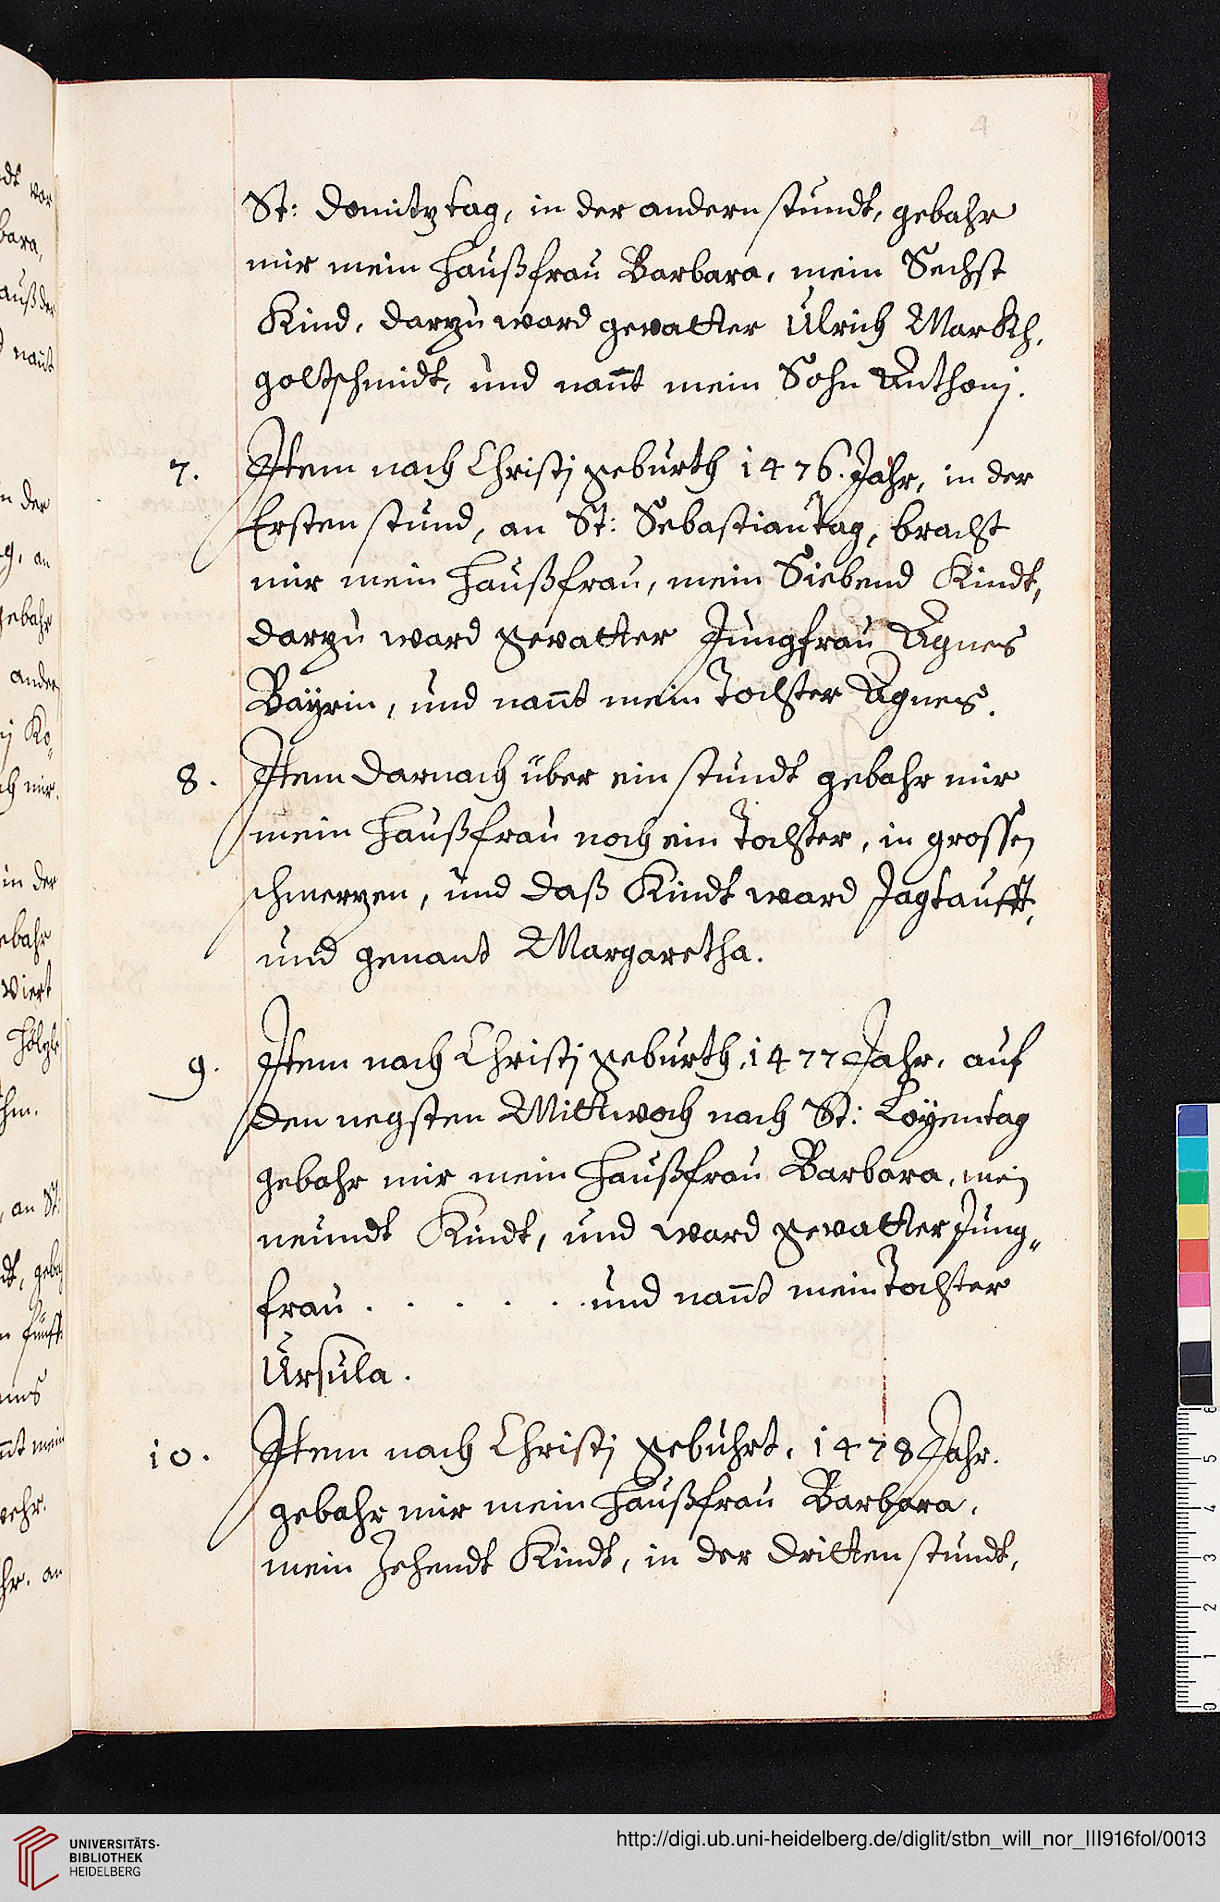 4
St: Domitztag, in der andern stundt, gebahr
mir mein Haußfrau Barbara, mein Sechst
Kind, darzu ward gevatter Ulrich Markh,
goltschmidt, und nañt mein Sohn Anthonj.
7. Item nach Christj geburth 1476. Jahr, in der
Ersten stund, an St: Sebastian Tag, bracht
mir mein Haußfrau, mein Siebend Kindt,
darzu ward gevatter Jungfrau Agnes
Bayrin, und nañt mein Tochter Agnes.
8. Item darnach über ein stundt gebahr mir
mein Haußfrau noch ein Tochter, in grossen
schmerzen, und daß Kindt ward Jagtaufft,
und genant Margaretha.
9. Item nach Christj geburth, 1477 Jahr, auf
den negsten Mittwoch nach St: Loyentag
gebahr mir mein Haußfrau Barbara, mein
neundt Kindt, und ward gevatter Jung„
frau . . . . . . und nañt mein Tochter
Ursula.
10. Item nach Christj gebuhrt, 1478 Jahr.
gebahr mir mein Haußfrau Barbara,
mein Zehendt Kindt, in der dritten stundt,
UNIVERSITÄTS-
BIBLIOTHEK
HEIDELBERG
http://digi.ub.uni-heidelberg.de/diglit/stbn_will_nor_III916fol/0013